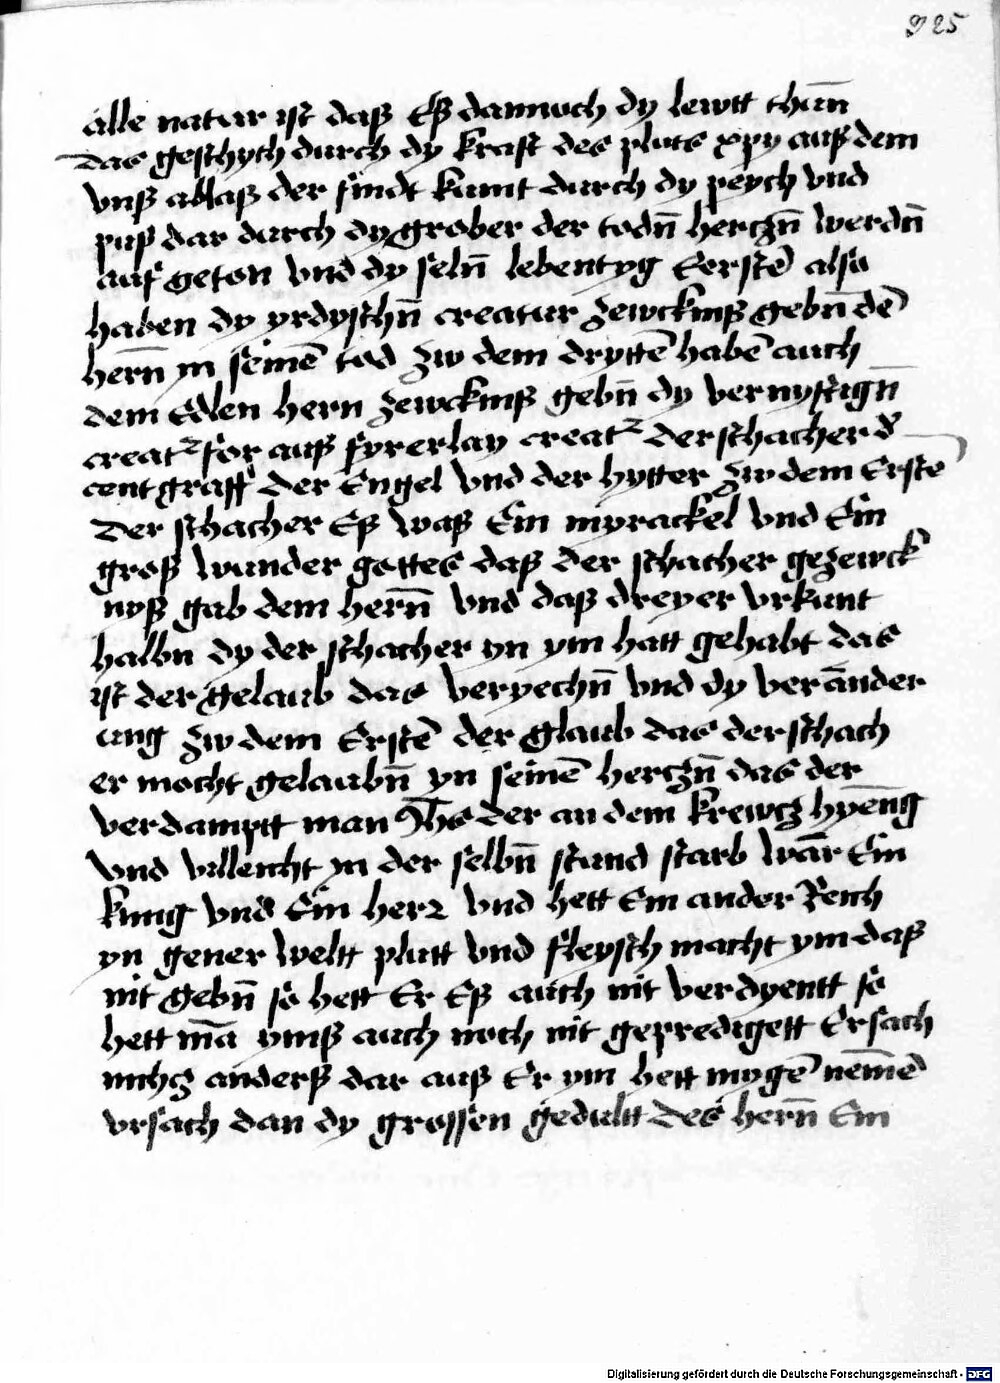 925
alle natur ist daß Eß dannoch dy lewtt thūn
das geschych durch dy kraft des pluts xpy auß dem
vnß ablaß der sindt kumt durch dy peych vnd
puß dar durch dy grober der todn̄ herczn̄ werdn̄
auf geton vnd dy seln̄ lebentyg Eerstē also
haben dy yrdyschn̄ creatur zewcknuß gebn̄ dē
hern̄ yn seinē tod zw dem dryttē habē auch
dem Edlen hern zewcknuß gebn̄ dy vernyftign̄
creatr for auß fyrerlay creatr der schacher d'
centgraff der Engel vnd der hytter zw dem Erstē
der schacher Eß waß Ein myrackel vnd Ein
groß wunder gottes daß der schacher gezewck
nyß gab dem hern̄ vnd daß dreyer vrkunt
halbn dy der schacher yn ym hatt gehabt das
ist der gelaub das veryechn̄ vnd dy verānder
ung zw dem Erstē der glaub das der schach
er mocht gelaubn̄ yn seinē herczn̄ das der
verdamptt man Jhs der an dem krewcz hyēng
vnd villeicht yn der selbn̄ stund starb wār Ein
kung vnd Ein herr vnd hett Ein ander Reich
yn gener weltt plutt vnd fleysch macht ym daß
nit gebn̄ so hett Er Eß auch nit verdyentt so
hett mā ymß auch noch nit gepredigett Ersach
nichz anderß dar auß Er ym hett mygē nemē
vrsach dan dy grossen gedultt des hern̄ Ein
Digitalisierung gefördert durch die Deutsche Forschungsgemeinschaft - DFG